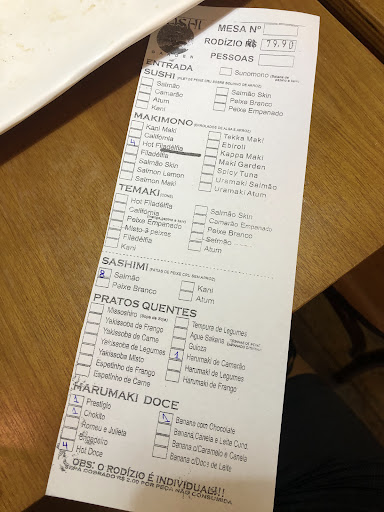 SUSHI
GARDEN
MESA Nº
RODÍZIO R$ 79.90
PESSOAS
ENTRADA
Sunomono
SUSHI
Salmão
Salmão Skin
Camarão
Peixe Branco
Atum
Peixe Empanado
Kani
MAKIMONO (ENROLADOS DE ALGA E ARROZ)
Kani Maki
Tekka Maki
California
Ebiroll
4 Hot Filadélfia
Kappa Maki
Filadélfia
Maki Garden
Salmão Skin
Spicy Tuna
Salmon Lemon
Uramaki Salmão
Salmon Maki
Uramaki Atum
TEMAKI (CONE)
Hot Filadélfia
Salmão Skin
California
Camarão Empanado
Peixe Empanado
Peixe Branco
Misto-3 peixes
Salmão
Filadélfia
Atum
Kani
SASHIMI (FATIAS DE PEIXE CRU, SEM ARROZ)
8 Salmão
Kani
Peixe Branco
Atum
PRATOS QUENTES
Missoshiro (SOPA DE SOJA)
Tempura de Legumes
Yakissoba de Frango
Yakissoba de Carne
Guioza
Yakissoba de Legumes
1 Harumaki de Camarão
Yakissoba Misto
Harumaki de Legumes
Espetinho de Frango
Harumaki de Frango
Espetinho de Carne
HARUMAKI DOCE
Prestígio
Banana com Chocolate
Chokito
Banana,Canela e Leite Cond.
Romeu e Julieta
Banana c/Caramelo e Canela
Brigadeiro
Banana c/Doce de Leite
4 Hot Doce
OBS: O RODÍZIO É INDIVIDUAL!!!
SERÁ COBRADO R$ 2,00 POR PEÇA NÃO CONSUMIDA